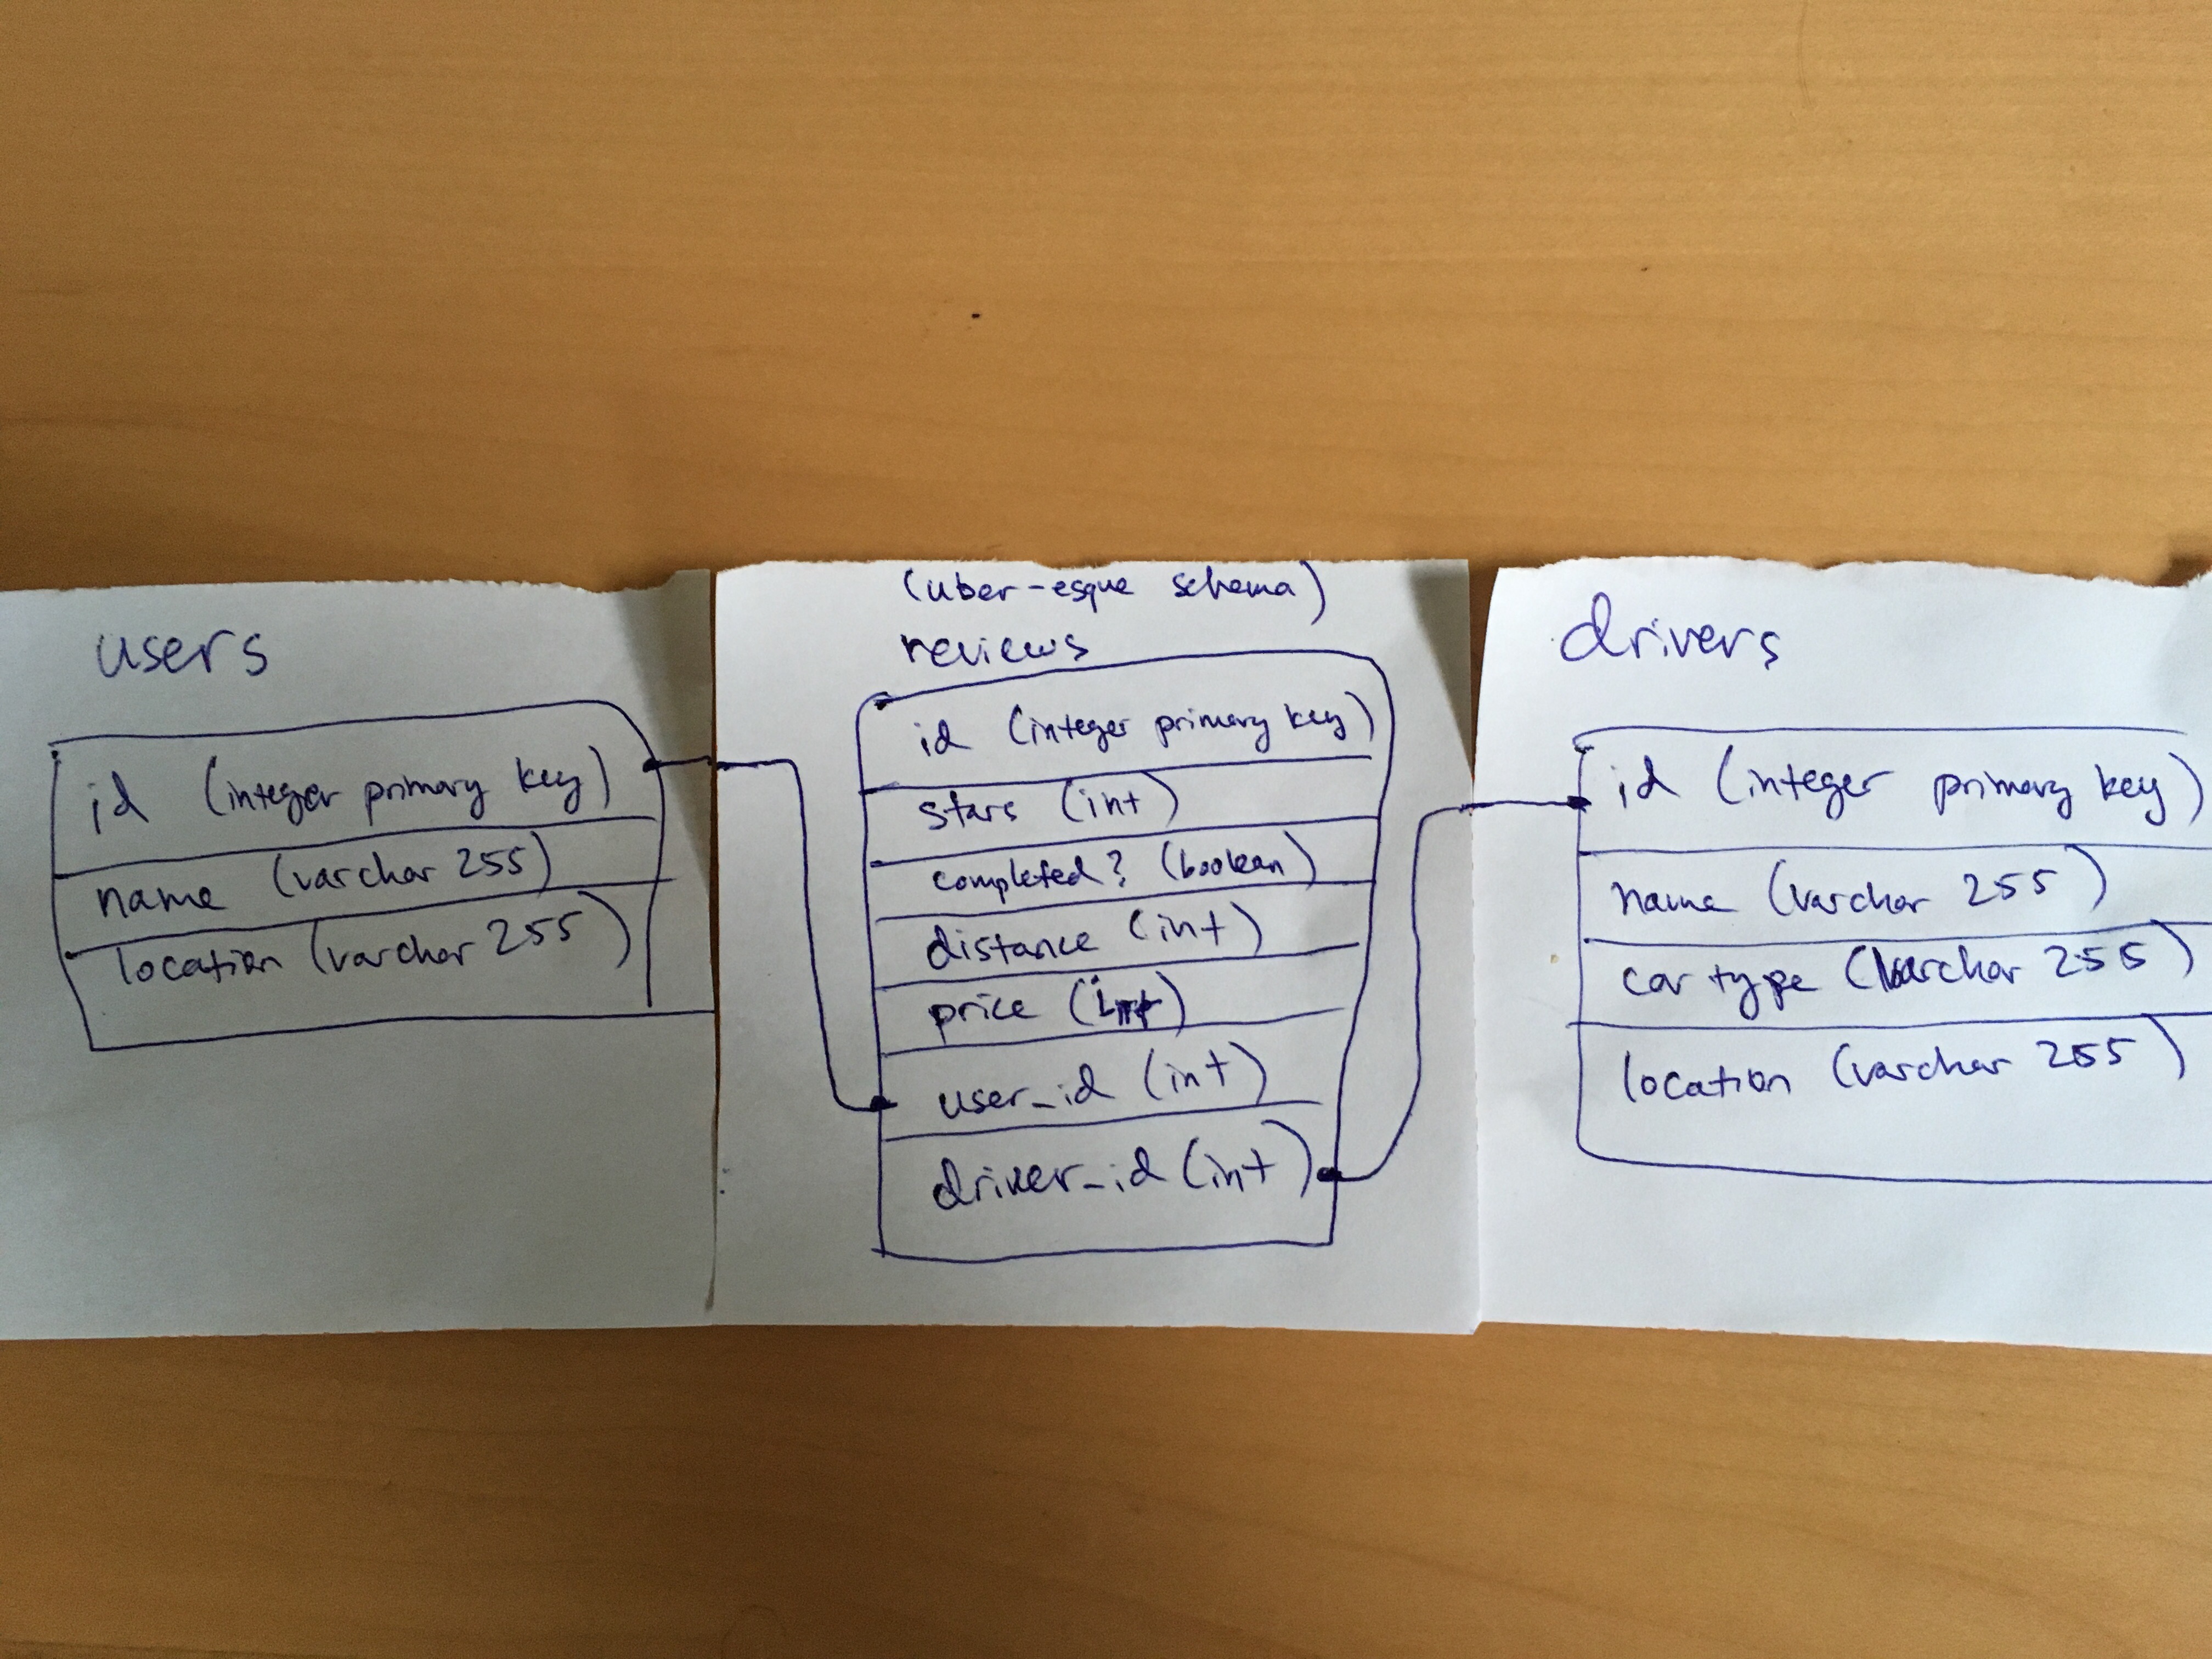 users
id (integer primary key)
name (varchar 255)
location (varchar 255)
(uber-esque schema)
reviews
id (integer primary key)
stars (int)
completed? (boolean)
distance (int)
price (int)
user_id (int)
driver_id (int)
drivers
id (integer primary key)
name (varchar 255)
car type (varchar 255)
location (varchar 255)